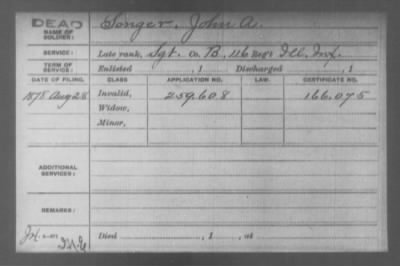 DEAD
NAME OF SOLDIER: Songer, John A.
SERVICE: Late rank, Sgt. Co. B, 116 Reg't Ill. Inf.
TERM OF SERVICE: Enlisted , 1 Discharged , 1
DATE OF FILING. CLASS APPLICATION NO. LAW. CERTIFICATE NO.
1878 Aug 28 Invalid, 259.608 166.075
Widow,
Minor,
ADDITIONAL SERVICES:
REMARKS:
Died , 1 , at